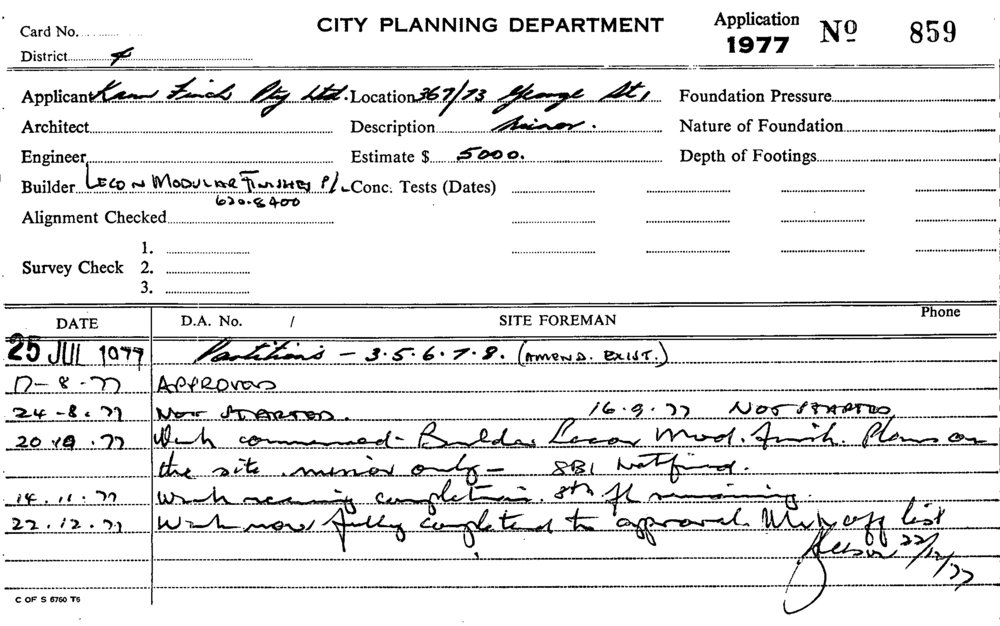 CITY PLANNING DEPARTMENT
Card No.
Application 1977 Nº 859
District 4
Applicant Kann Finch Pty Ltd. Location 367/73 George St, Foundation Pressure
Architect Description Minor. Nature of Foundation
Engineer Estimate $ 5000. Depth of Footings
Builder LECON MODULAR FINISHES P/L Conc. Tests (Dates)
620.8400
Alignment Checked
1.
Survey Check 2.
3.
DATE D.A. No. / SITE FOREMAN Phone
25 JUL 1977 Partitions - 3.5.6.7.8. (AMEND. EXIST.)
17-8-77 APPROVED
24-8.77 NOT STARTED. 16.9.77 NOT STARTED
20.9.77 Work commenced - Builder Lecon Mod. Finish. Plans on
the site minor only - SB1
14.11.77 Work nearing completion. 8th fl remaining.
22.12.77 Work now fully completed to approval. off list
22/12/77
C OF S 6760 T6